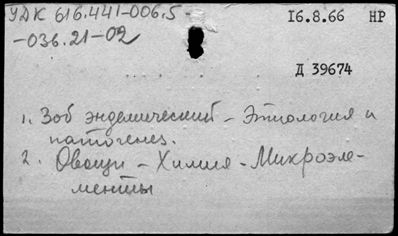 УДК 616.441-006.5- 16.8.66 НР
-036.21-02
Д 39674
1. Зоб эндемический - Этиология и
патогенез.
2. Овощи - Химия - Микроэле-
менты